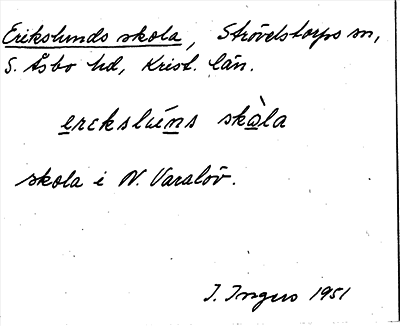 Erikslunds skola, Strövelstorps sn,
S. Åsbo hd, Krist. län.
erekslúns skòla
skola i N. Varalöv.
J. Ingers 1951